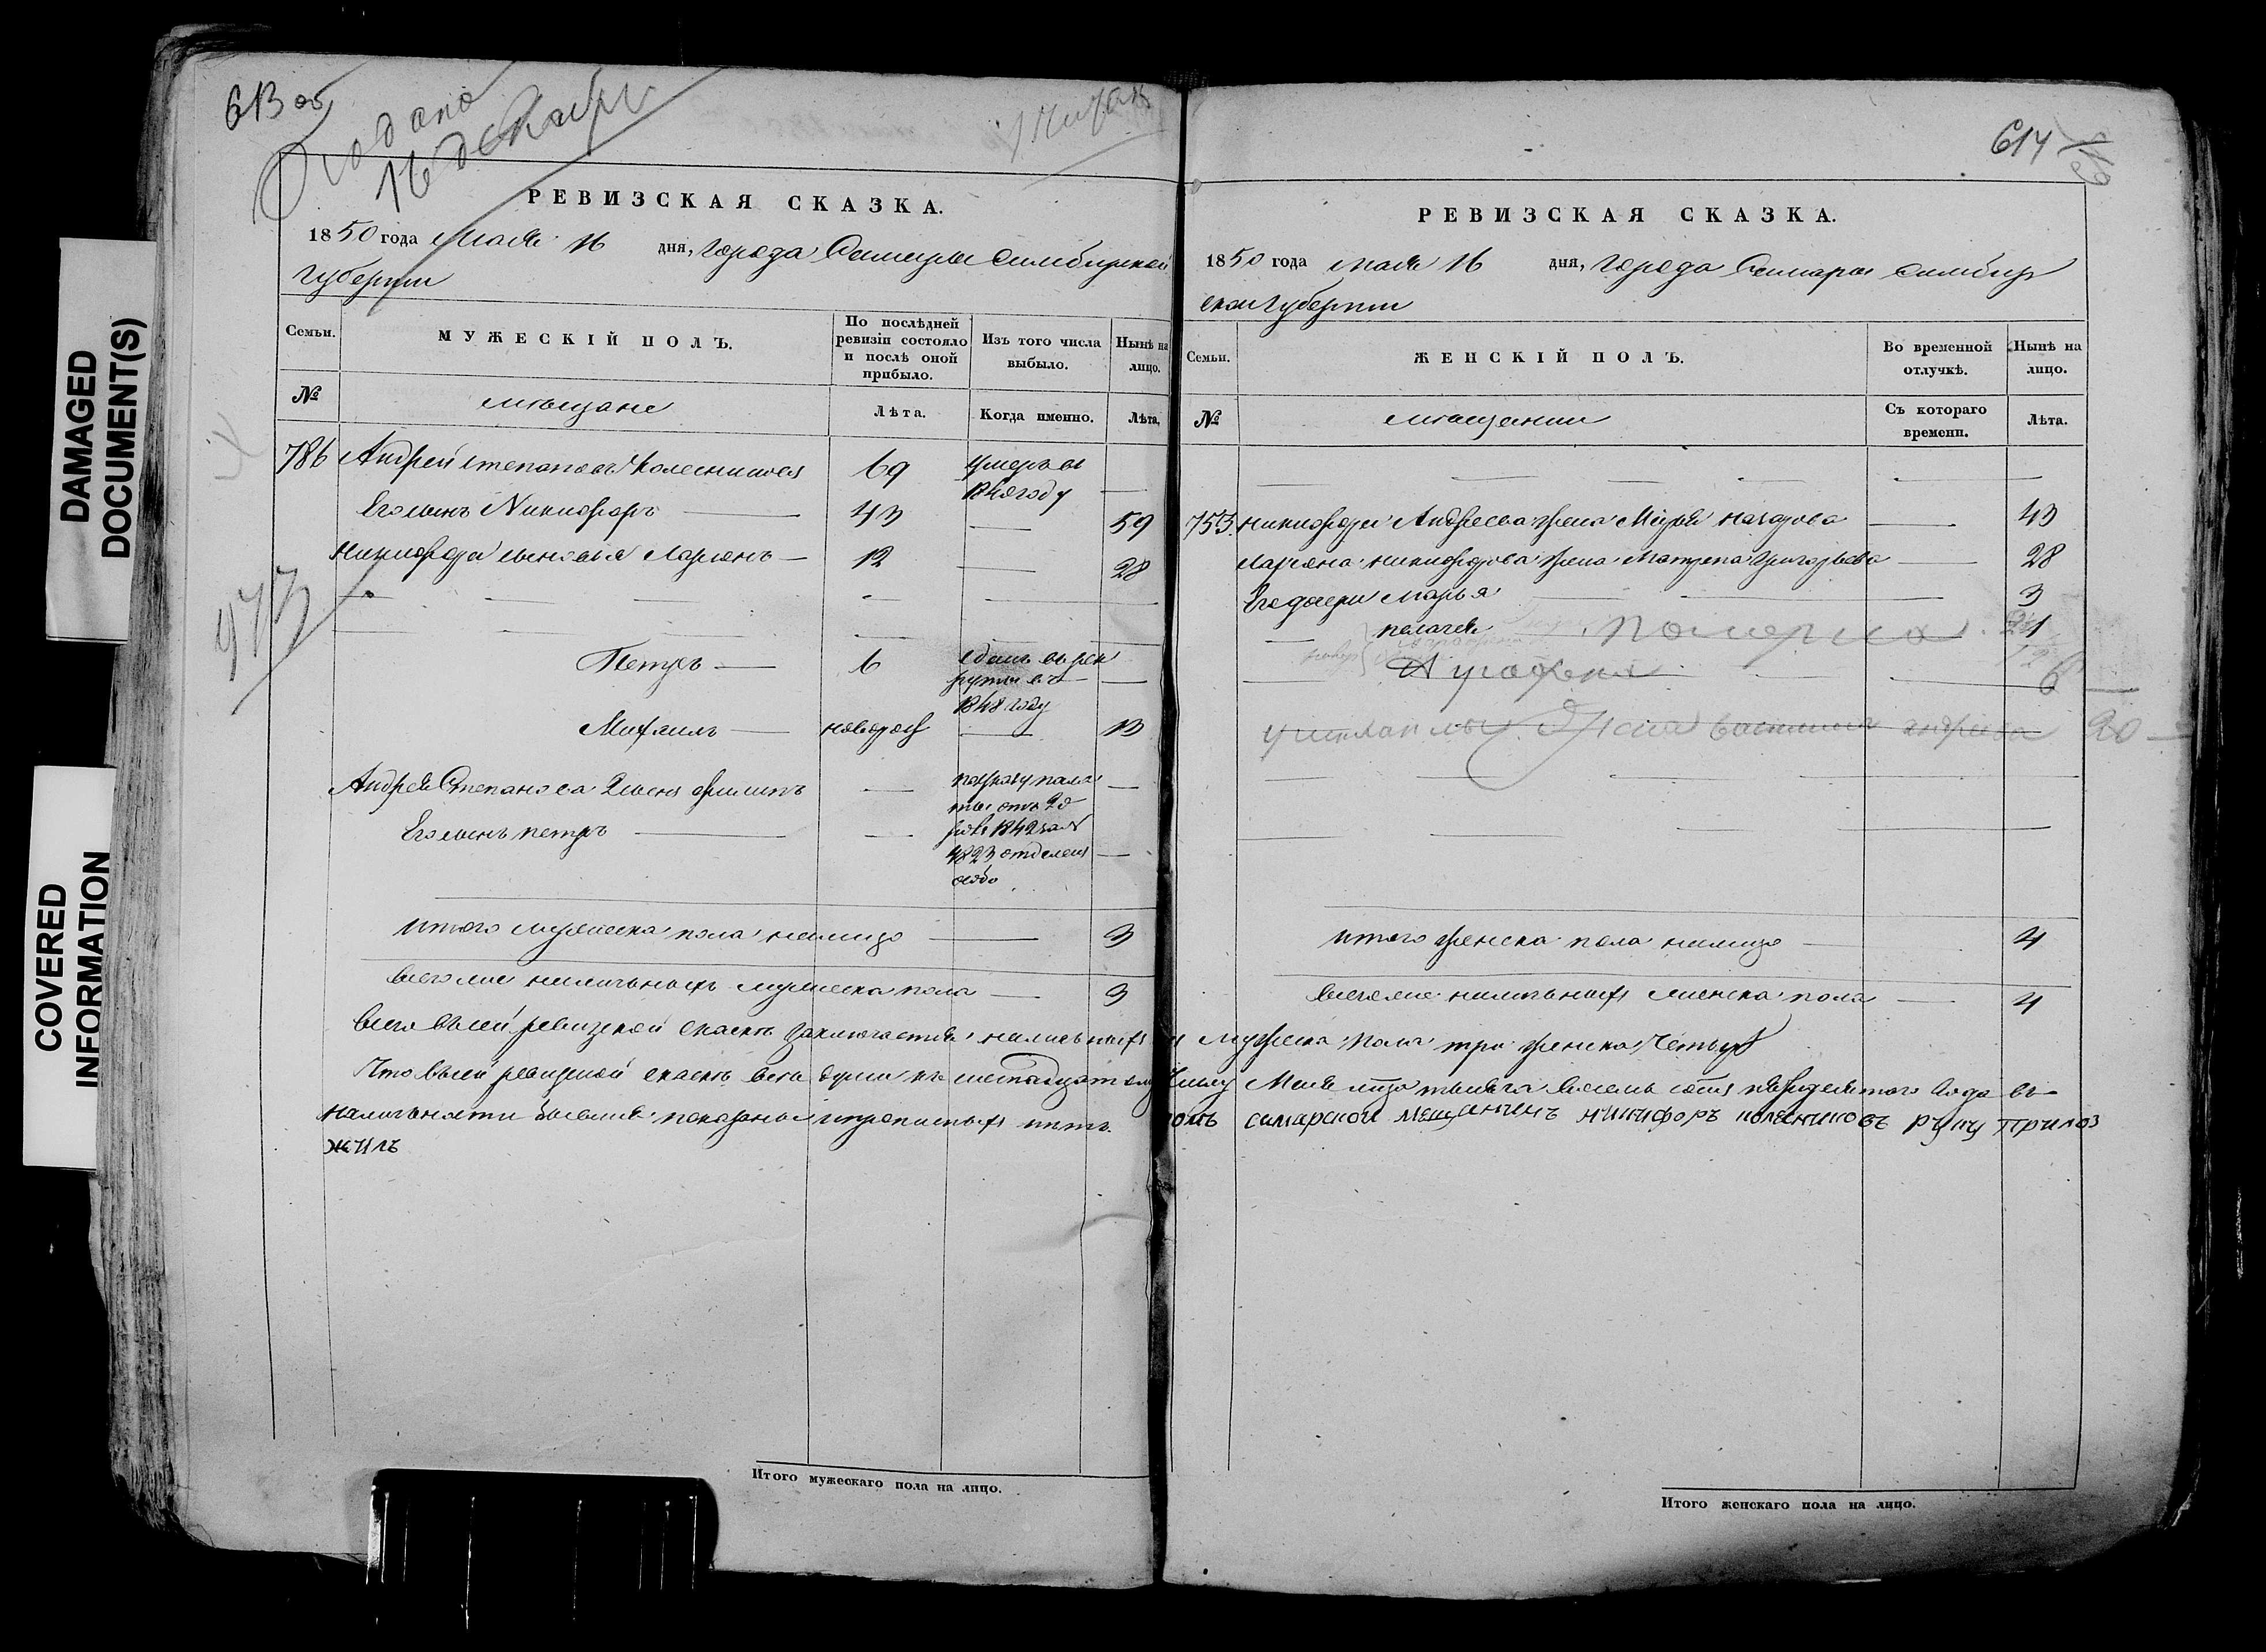 DAMAGED
DOCUMENT(S)
COVERED
INFORMATION
613 об
Подано
16 декабря
РЕВИЗСКАЯ СКАЗКА.
1850 года мая 16 дня, города Самары Симбирской
губернии
Семьи.
МУЖЕСКІЙ ПОЛЪ.
По послѣдней
ревизіи состояло
и послѣ оной
прибыло.
Изъ того числа
выбыло.
Нынѣ на
лицо.
№
мѣщане
Лѣта.
Когда именно.
Лѣта.
786 Андрей Степановъ Колесников 69 умеръ в
1840 году —
Его сынъ Никифоръ — 43 — 59
Никифора сыновья Ларионъ — 12 — 28
Петръ — 6 сданъ въ рек
руты въ —
1848 году
Михаилъ — новорож — 13
Андрея Степанова 2 сынъ Филипъ —
по указу пала
ты отъ 20
1842 за №
4823 отделен
особо
Его сынъ Петръ — — —
973
итого мужеска пола налицо — 3
всего же наличныхъ мужеска пола — 3
Всего въ сей ревизской сказке заключается наличныхъ
Что въ сей ревизской сказке все души къ шестнадцатому
наличности
жилъ
Итого мужескаго пола на лицо.
614
РЕВИЗСКАЯ СКАЗКА.
1850 года мая 16 дня, города Самары Симбир
ской губернии
Семьи.
ЖЕНСКІЙ ПОЛЪ.
Во временной
отлучкѣ.
Нынѣ на
лицо.
№
мѣщанки
Съ котораго
времени.
Лѣта.
753. Никифора Андреева жена Марья Назарова — 43
Лариона Никифорова жена Матрена Григорьева — 28
Его дочери Марья — 3
Пелагея — померла 1
Аграфена 6
Василиса Андреева 20
итого женска пола налицо — 4
всего же наличныхъ женска пола — 4
мужеска пола три женска четыре
числу Мая м-ца тысяча восемь сотъ пятидесятого года въ
томъ самарской мещанинъ никифоръ колесниковъ руку прилоз
Итого женскаго пола на лицо.